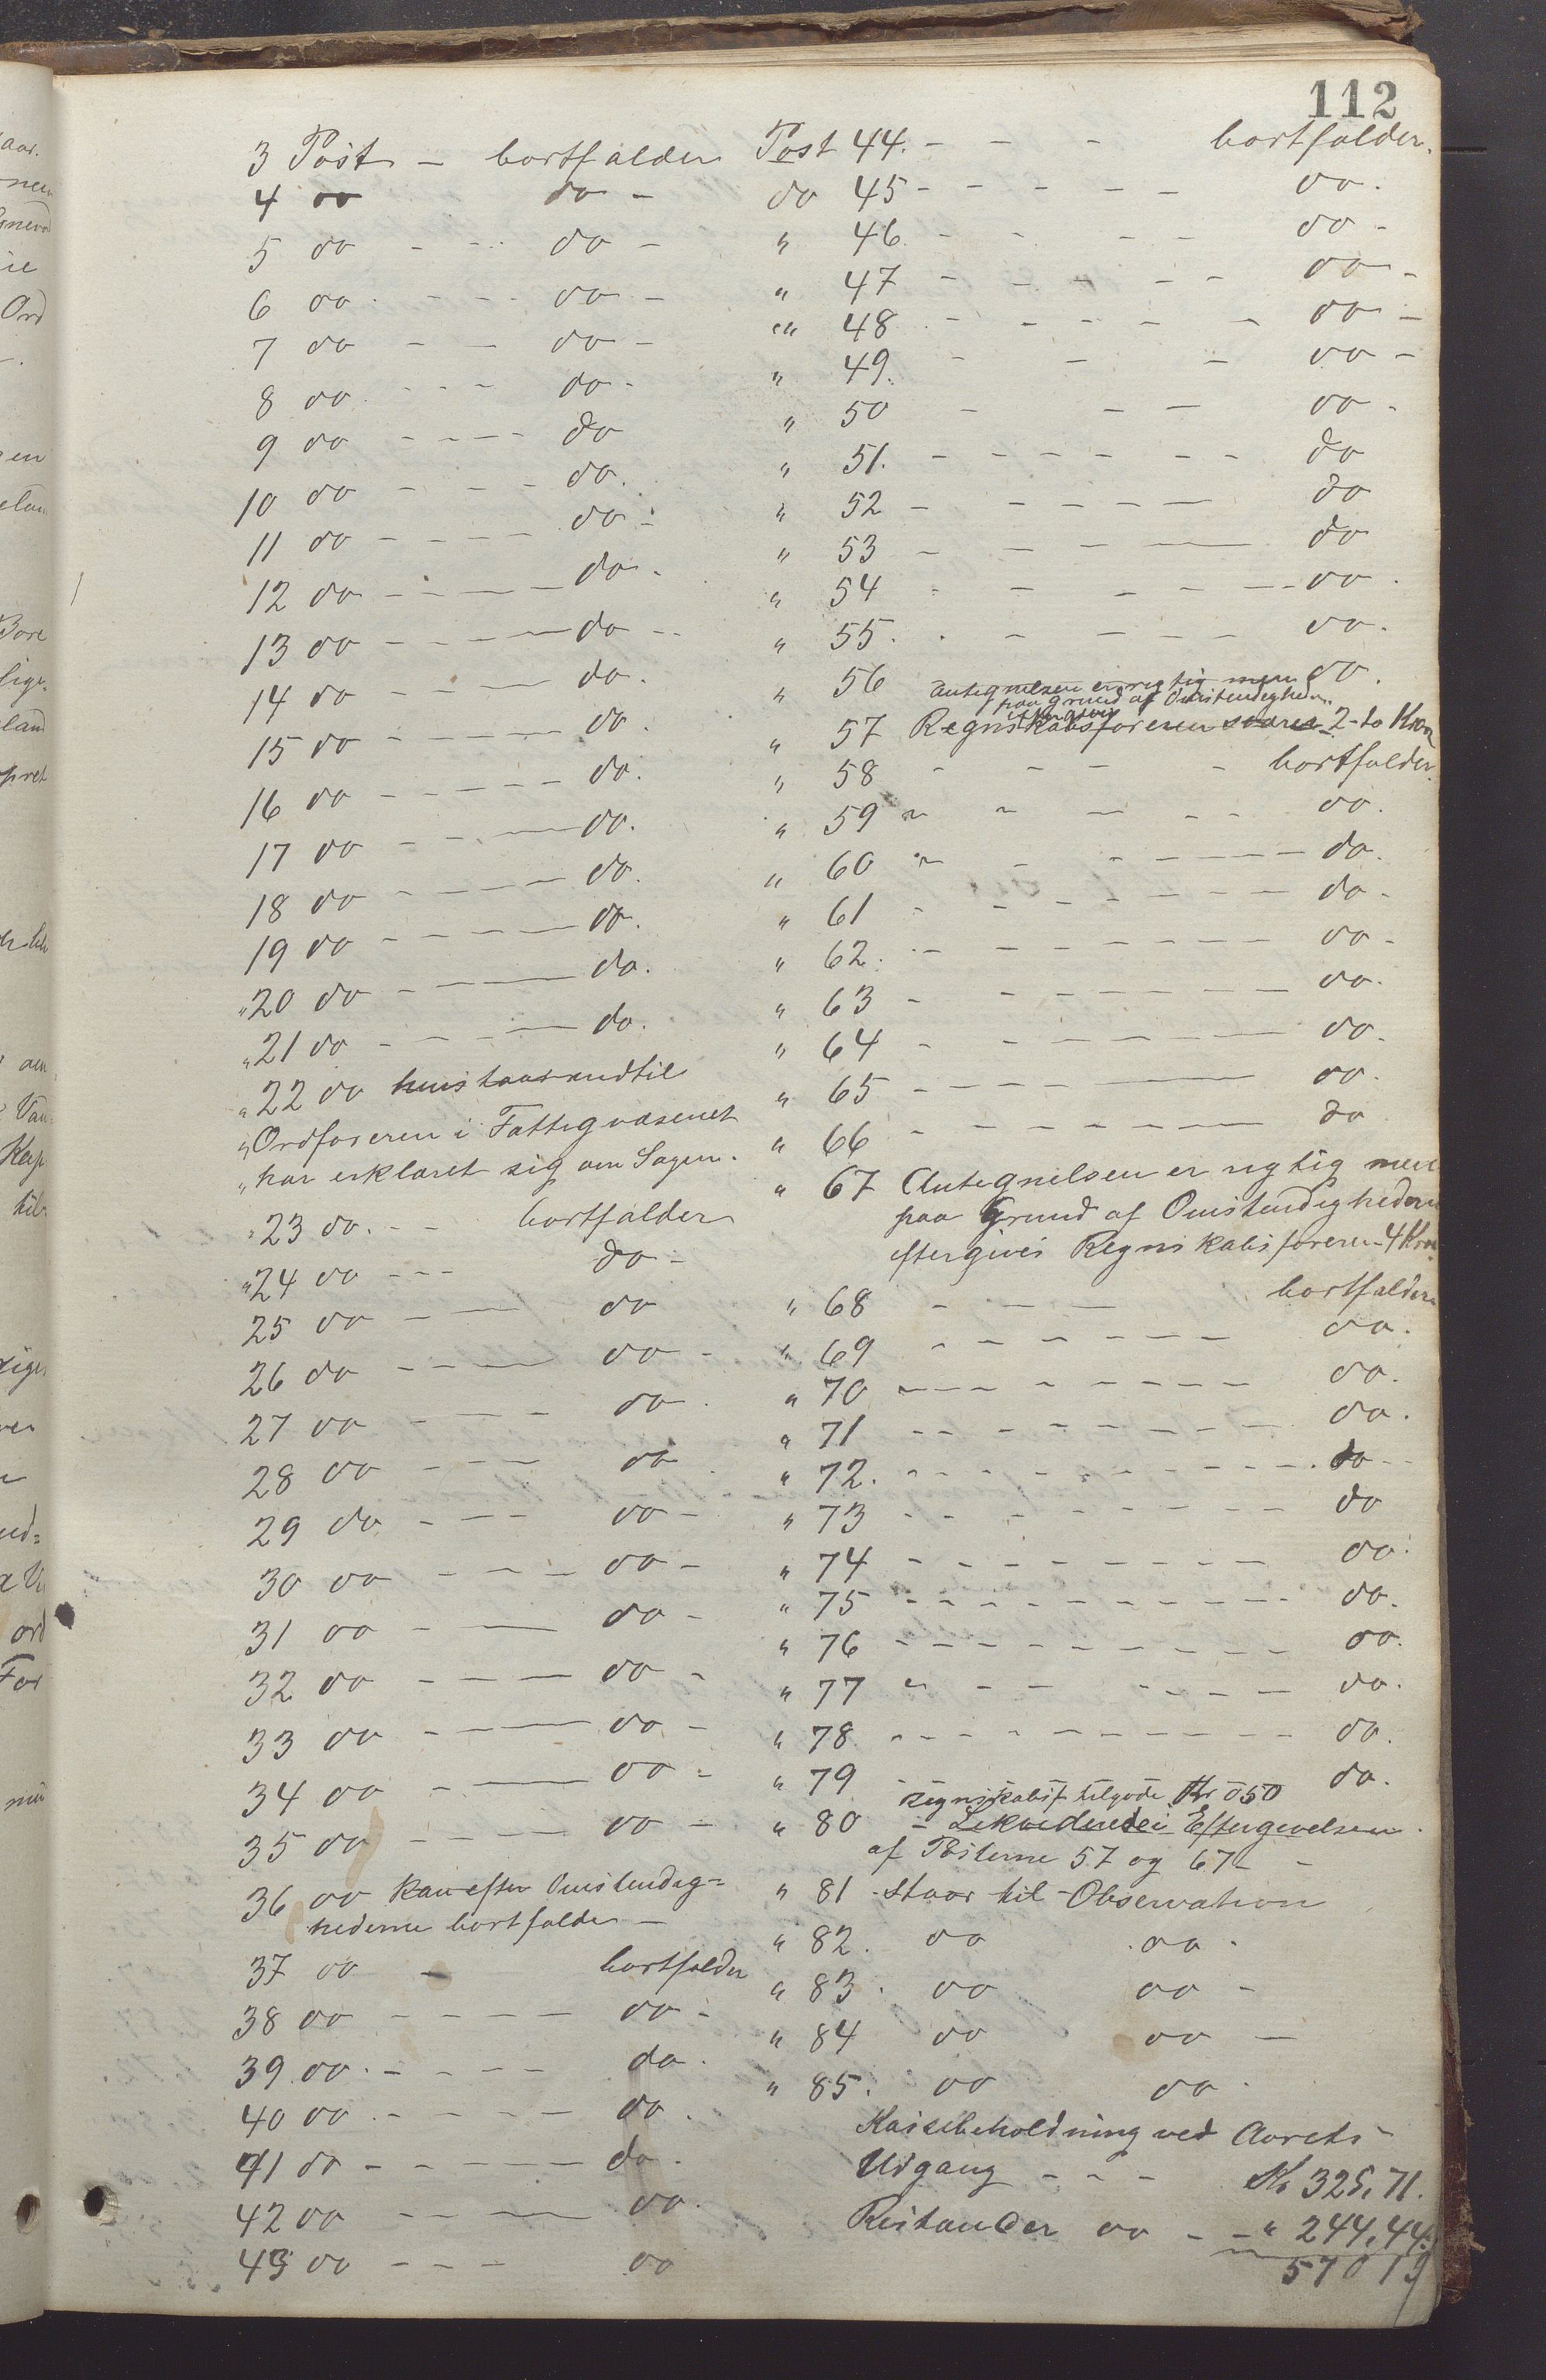 112
3 Post - bortfalder
4 do do -
5 do - - - do -
6 do - - - do -
7 do - - do -
8 do - - - do -
9 do - - - - do
10 do - - - - do.
11 do - - - - do -
12 do - - - - do -
13 do - - - - do -
14 do - - - do.
15 do - - - - do.
16 do - - - - - do.
17 do - - - do.
18 do - - - - do.
19 do - - - - do.
" 20 do - - - do.
" 21 do - - - - do.
" 22 do henstaar indtil
" Ordføreren i Fattigvæsenet
" har erklæret sig om Sagen.
" 23 do. - - bortfalder
" 24 do - - - do -
25 do - - do
26 do - - - do -
27 do - - - do.
28 do - - - do
29 do - - - do -
30 do - - - do -
31 do - - do -
32 do - - - do -
33 do - - - do -
34 do - - do -
35 do - - - do -
36 do kan efter Omstendig=
hederne bortfalde -
37 do - bortfalder
38 do - - - - do -
39 do. - - - - do.
40 do. - - - - do.
41 do - - - - - do.
42 do - - - do.
43 do - - - do
Post 44. - - - bortfalder.
do 45 - - - - - do.
" 46. - - - - do -
" 47 - - - - - do -
" 48 - - - - - do -
" 49. - - - do -
" 50 - - - do -
" 51. - - - - - - - do
" 52 - - - - - do
" 53 - - - - do
" 54 - - - - - do.
" 55. - - - - - do.
" 56 do.
Antegnelsen er rigtig men
paa Grund af Omstendigheden
eftergives
" 57 Regnskabsføreren svarer 2-to Kron
" 58 - - - - bortfalder.
" 59 - - - - - do.
" 60 - - - - - - do.
" 61 - - - - - - - do -
" 62. - - - - - - - do -
" 63 - - - - - - - do.
" 64 - - - - - - do.
" 65 - - - - - do.
" 66 - - - - - - do
" 67 Antegnelsen er rigtig men
paa Grund af Omstendighedern
eftergives Regnskabsføreren 4 Kron
" 68 - - - bortfalder
" 69 - - - - - - - do.
" 70 - - - - - - - - do.
" 71 - - - - - - - - do.
" 72. - - - - - - - - - do -
" 73 - - - - - - - - do
" 74 - - - - - - - - do.
" 75 - - - - - - - - - do.
" 76 - - - - - - - - do.
" 77 - - - - - - - do.
" 78. - - - - - - - - - do.
" 79 do.
Regnskabsf tilgode Kr 050
" 80 - Lekvideres i Eftergivelsen.
af Posterne 57 og 67 - -
" 81 - Staar til - Observation
" 82. do do -
" 83. do do -
" 84 do do -
" 85. do do.
Kassebeholdning ved Aarets -
Udgang - - - Kr 325,71.
Restancer do - - " 244,44.
570 15